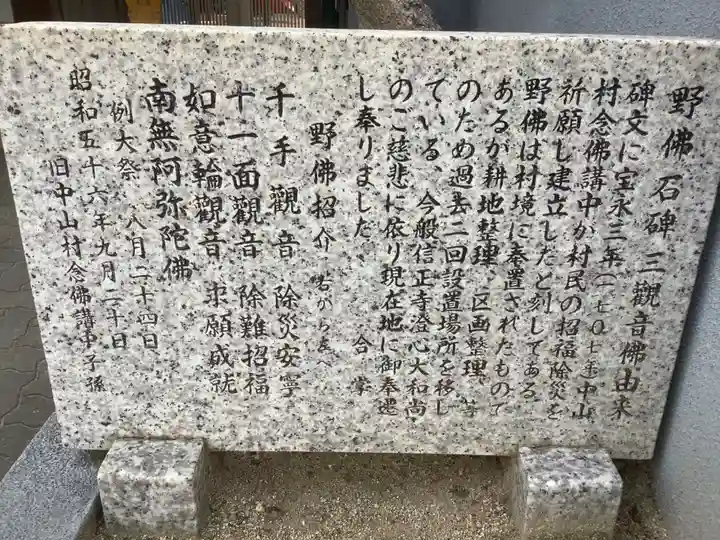 野佛石碑三觀音佛由来
碑文に宝永三年(一七〇七年)中山
村念佛講中が村民の招福除災を
祈願し建立したと刻してある
野佛は村境に奉置されたもので
あるが耕地整理、区画整理、等
のため過去二回設置場所を移し
ている、今般信正寺澄心大和尚
のご慈悲に依り現在地に御奉遷
し奉りました 合掌
野佛招介 右から左へ
千手觀音 除災安寧
十一面觀音 除難招福
如意輪觀音 求願成就
南無阿弥陀佛
例大祭 八月二十四日
昭和五十六年九月二十日
旧中山村念佛講中子孫